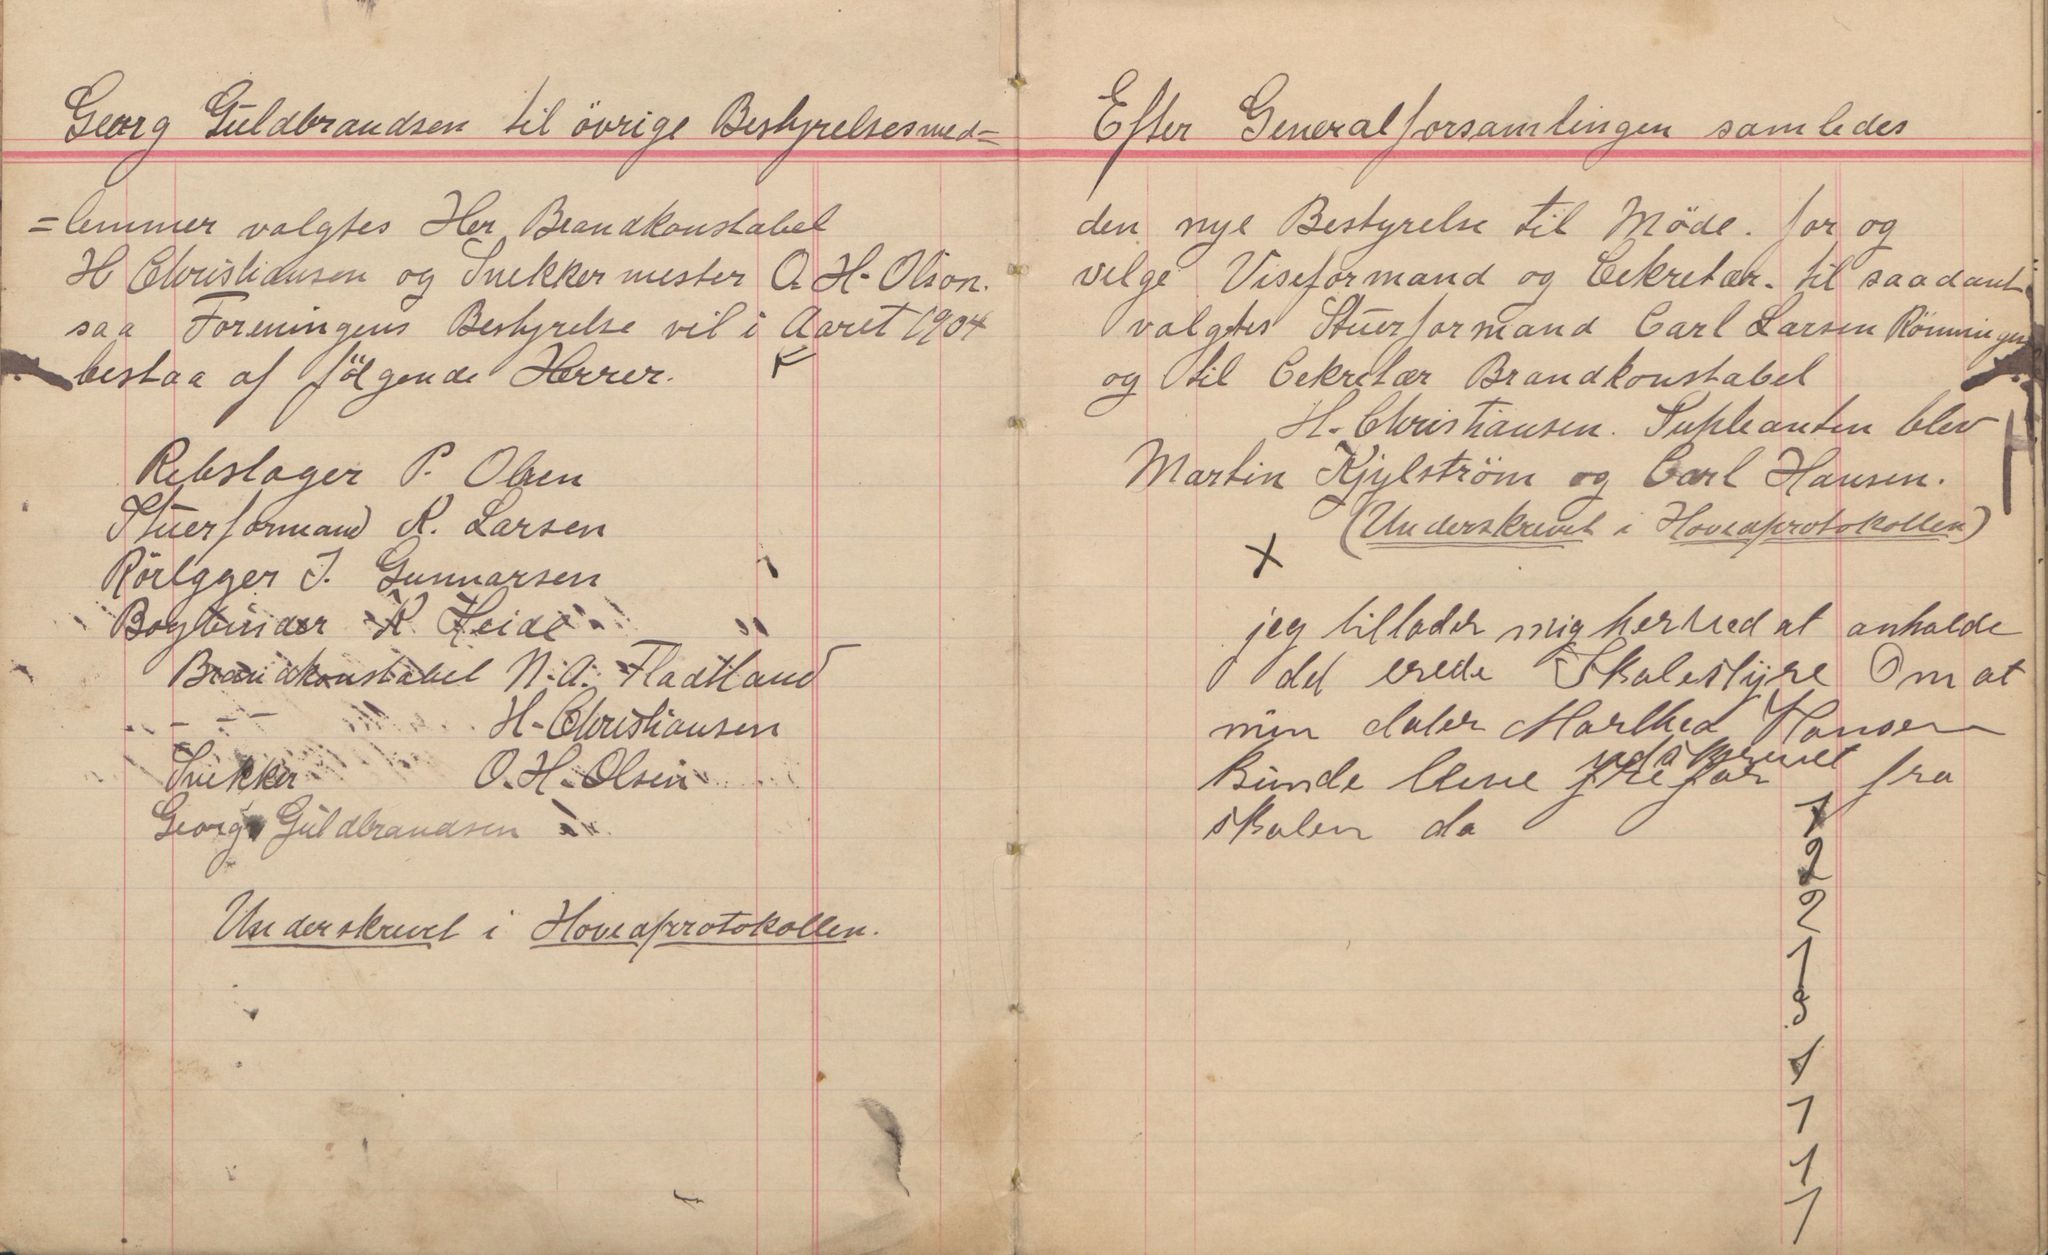 Georg Guldbrandsen til övrige Bestyrelsesmed=
=lemmer valgtes Her Brandkonstabel
H Christiansen og Snekkermester O. H. Olson.
saa Foreningens Bestyrelse vil i Aaret 1904
bestaa af fölgende Herrer.
Rebslager P. Olsen
Stuerformand K. Larsen
Rörlgger I. Gunnarsen
Bogbinder K Heide
Brandkonstabel N. A. Fladtland
- - - H. Christiansen
Snekker O. H. Olsen
Georg Guldbrandsen
Underskrevet i Hovedprotokollen.
Efter Generalforsamlingen samledes
den nye Bestyrelse til Möde. for og
velge Viseformand og Cekretær. til saadant
valgtes Stuerformand Carl Larsen Rönningen
og til Cekretær Brandkonstabel
H. Christiansen. Supleanten blev
Martin Kjylström og Carl Hansen.
(Underskrevet i Hovedprotokollen)
X
jeg tillader mig herved at anholde
det erede Skolestyre Om at
min dater Marthea Hansen
udskrevet
kunde bleve fra
skolen da
1
2
2
1
3
1
1
1
1